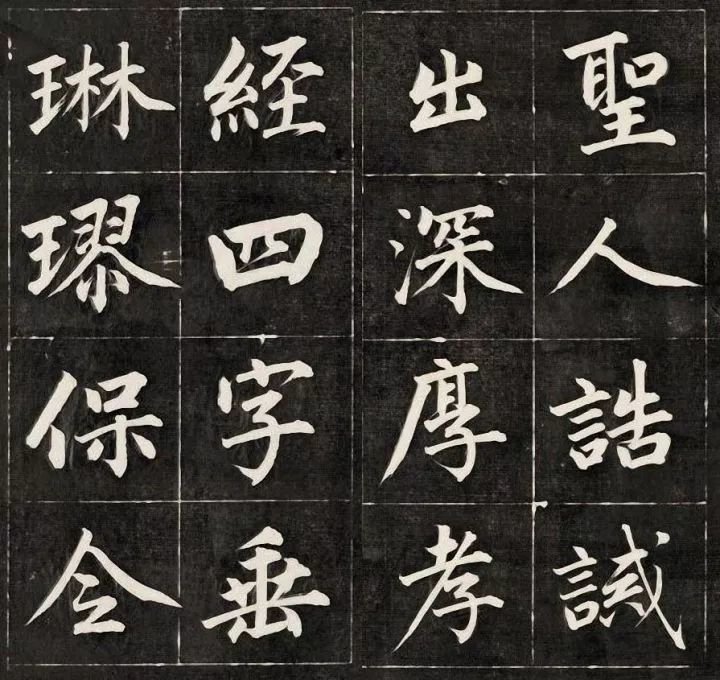 聖人誥誡
出深厚孝
經四字垂
琳璆保令